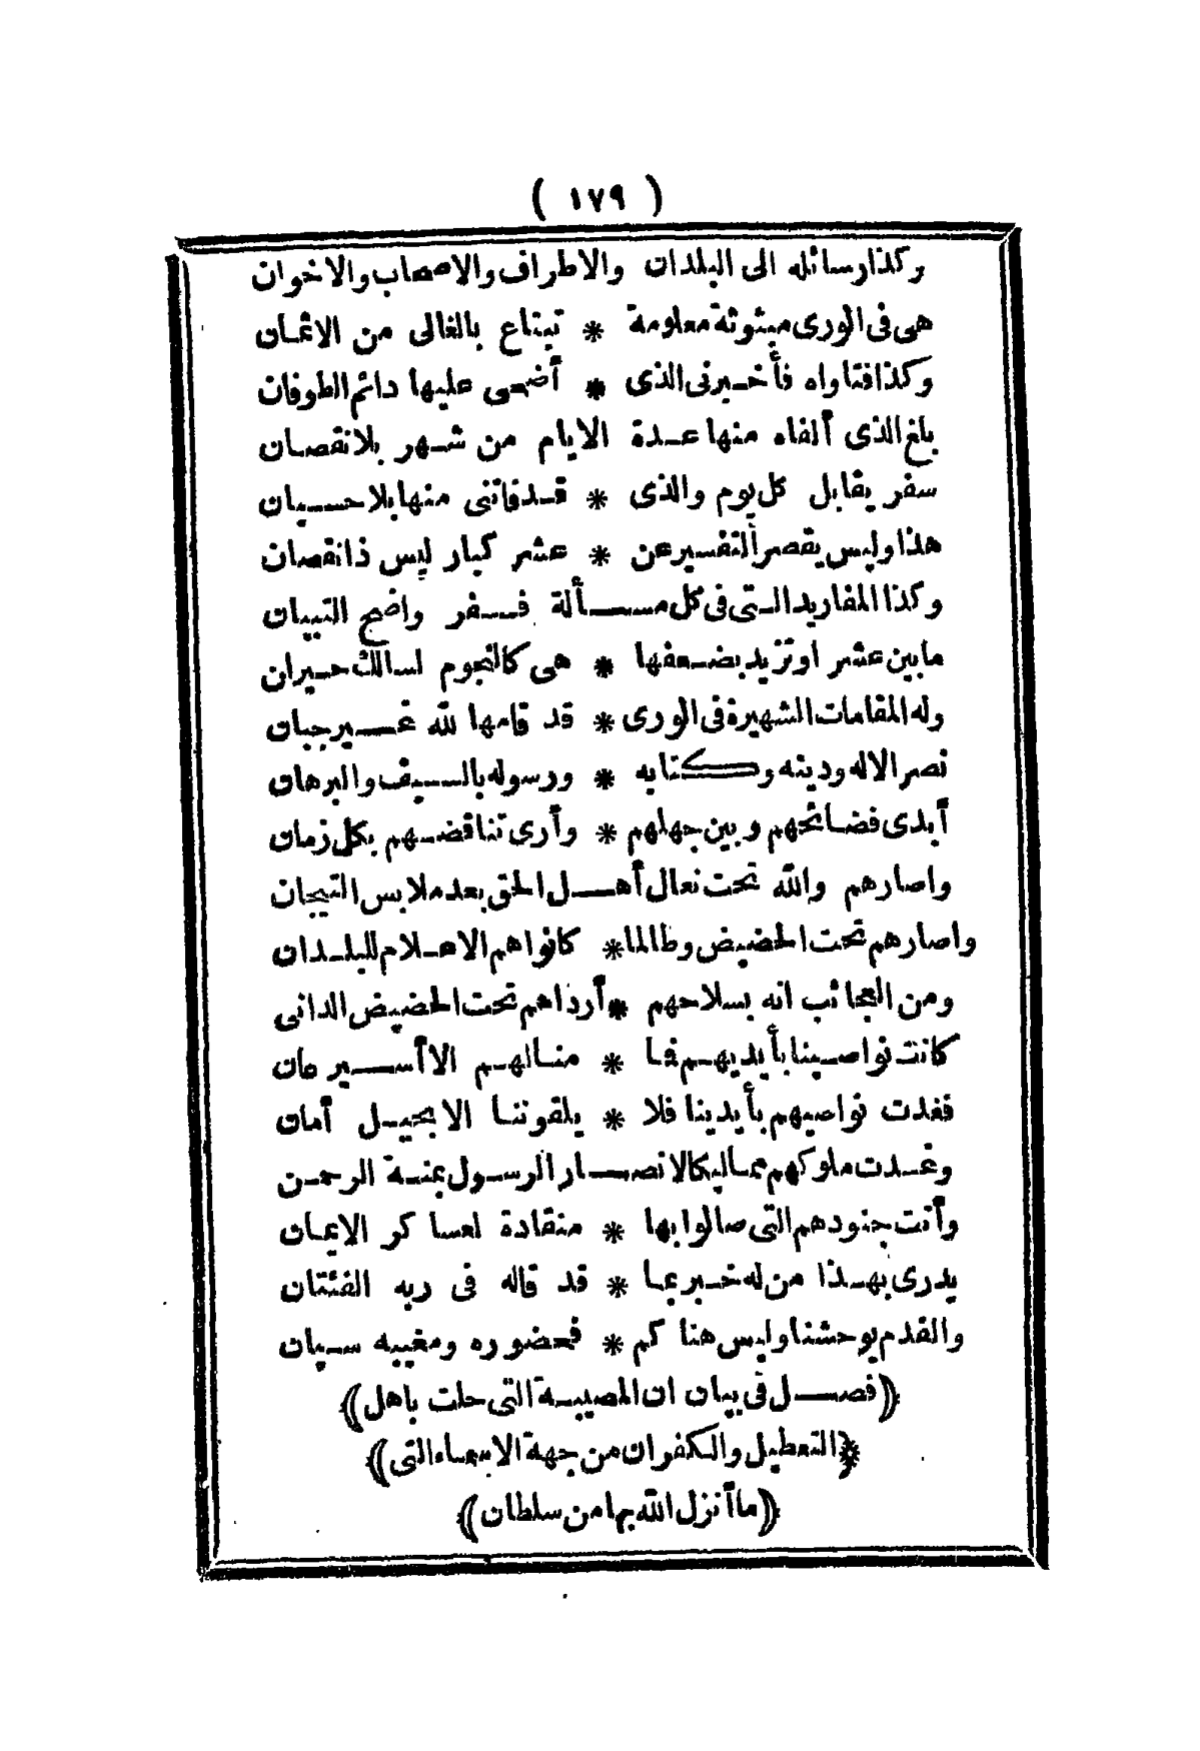 ( ١٧٩ )
وكذا رسائله الى البلدان والاطراف والاصحاب والاخوان
هى فى الورى مبثوثة معلومة * تبتاع بالغالى من الاثمان
وكذا فتاواه فأخبرنى الذى * أضحى عليها دائم الطوفان
بلغ الذى ألفاه منها عدة الايام من شهر بلا نقصان
سفر يقابل كل يوم والذى * قد فاتنى منها بلا حسبان
هذا وليس يقصر التفسير عن * عشر كبار ليس ذا نقصان
وكذا المفاريد التى فى كل مسألة فسفر واضح التبيان
ما بين عشر او تزيد بضعفها * هى كالنجوم لسالك حيران
وله المقامات الشهيرة فى الورى * قد قامها لله غير جبان
نصر الاله ودينه وكتابه * ورسوله بالسيف والبرهان
أبدى فضائحهم وبين جهلهم * وأرى تناقضهم بكل زمان
واصارهم والله تحت نعال أهل الحق بعد ملابس التيجان
واصارهم تحت الحضيض وطالما * كانوا هم الاعلام للبلدان
ومن العجائب انه بسلاحهم * أرداهم تحت الحضيض الدانى
كانت نواصينا بأيديهم فما * منا لهم الا أسير عان
فغدت نواصيهم بأيدينا فلا * يلقوننا الا بحبل أمان
وغدت ملوكهم مماليكا لانصار الرسول بمنة الرحمن
وأتت جنودهم التى صالوا بها * منقادة لعساكر الايمان
يدرى بهذا من له خبر بما * قد قاله فى ربه الفئتان
والفدم يوحشنا وليس هناكم * فحضوره ومغيبه سيان
﴿فصل فى بيان ان المصيبة التى حلت باهل﴾
﴿التعطيل والكفران من جهة الاسماء التى﴾
﴿ما أنزل الله بها من سلطان﴾